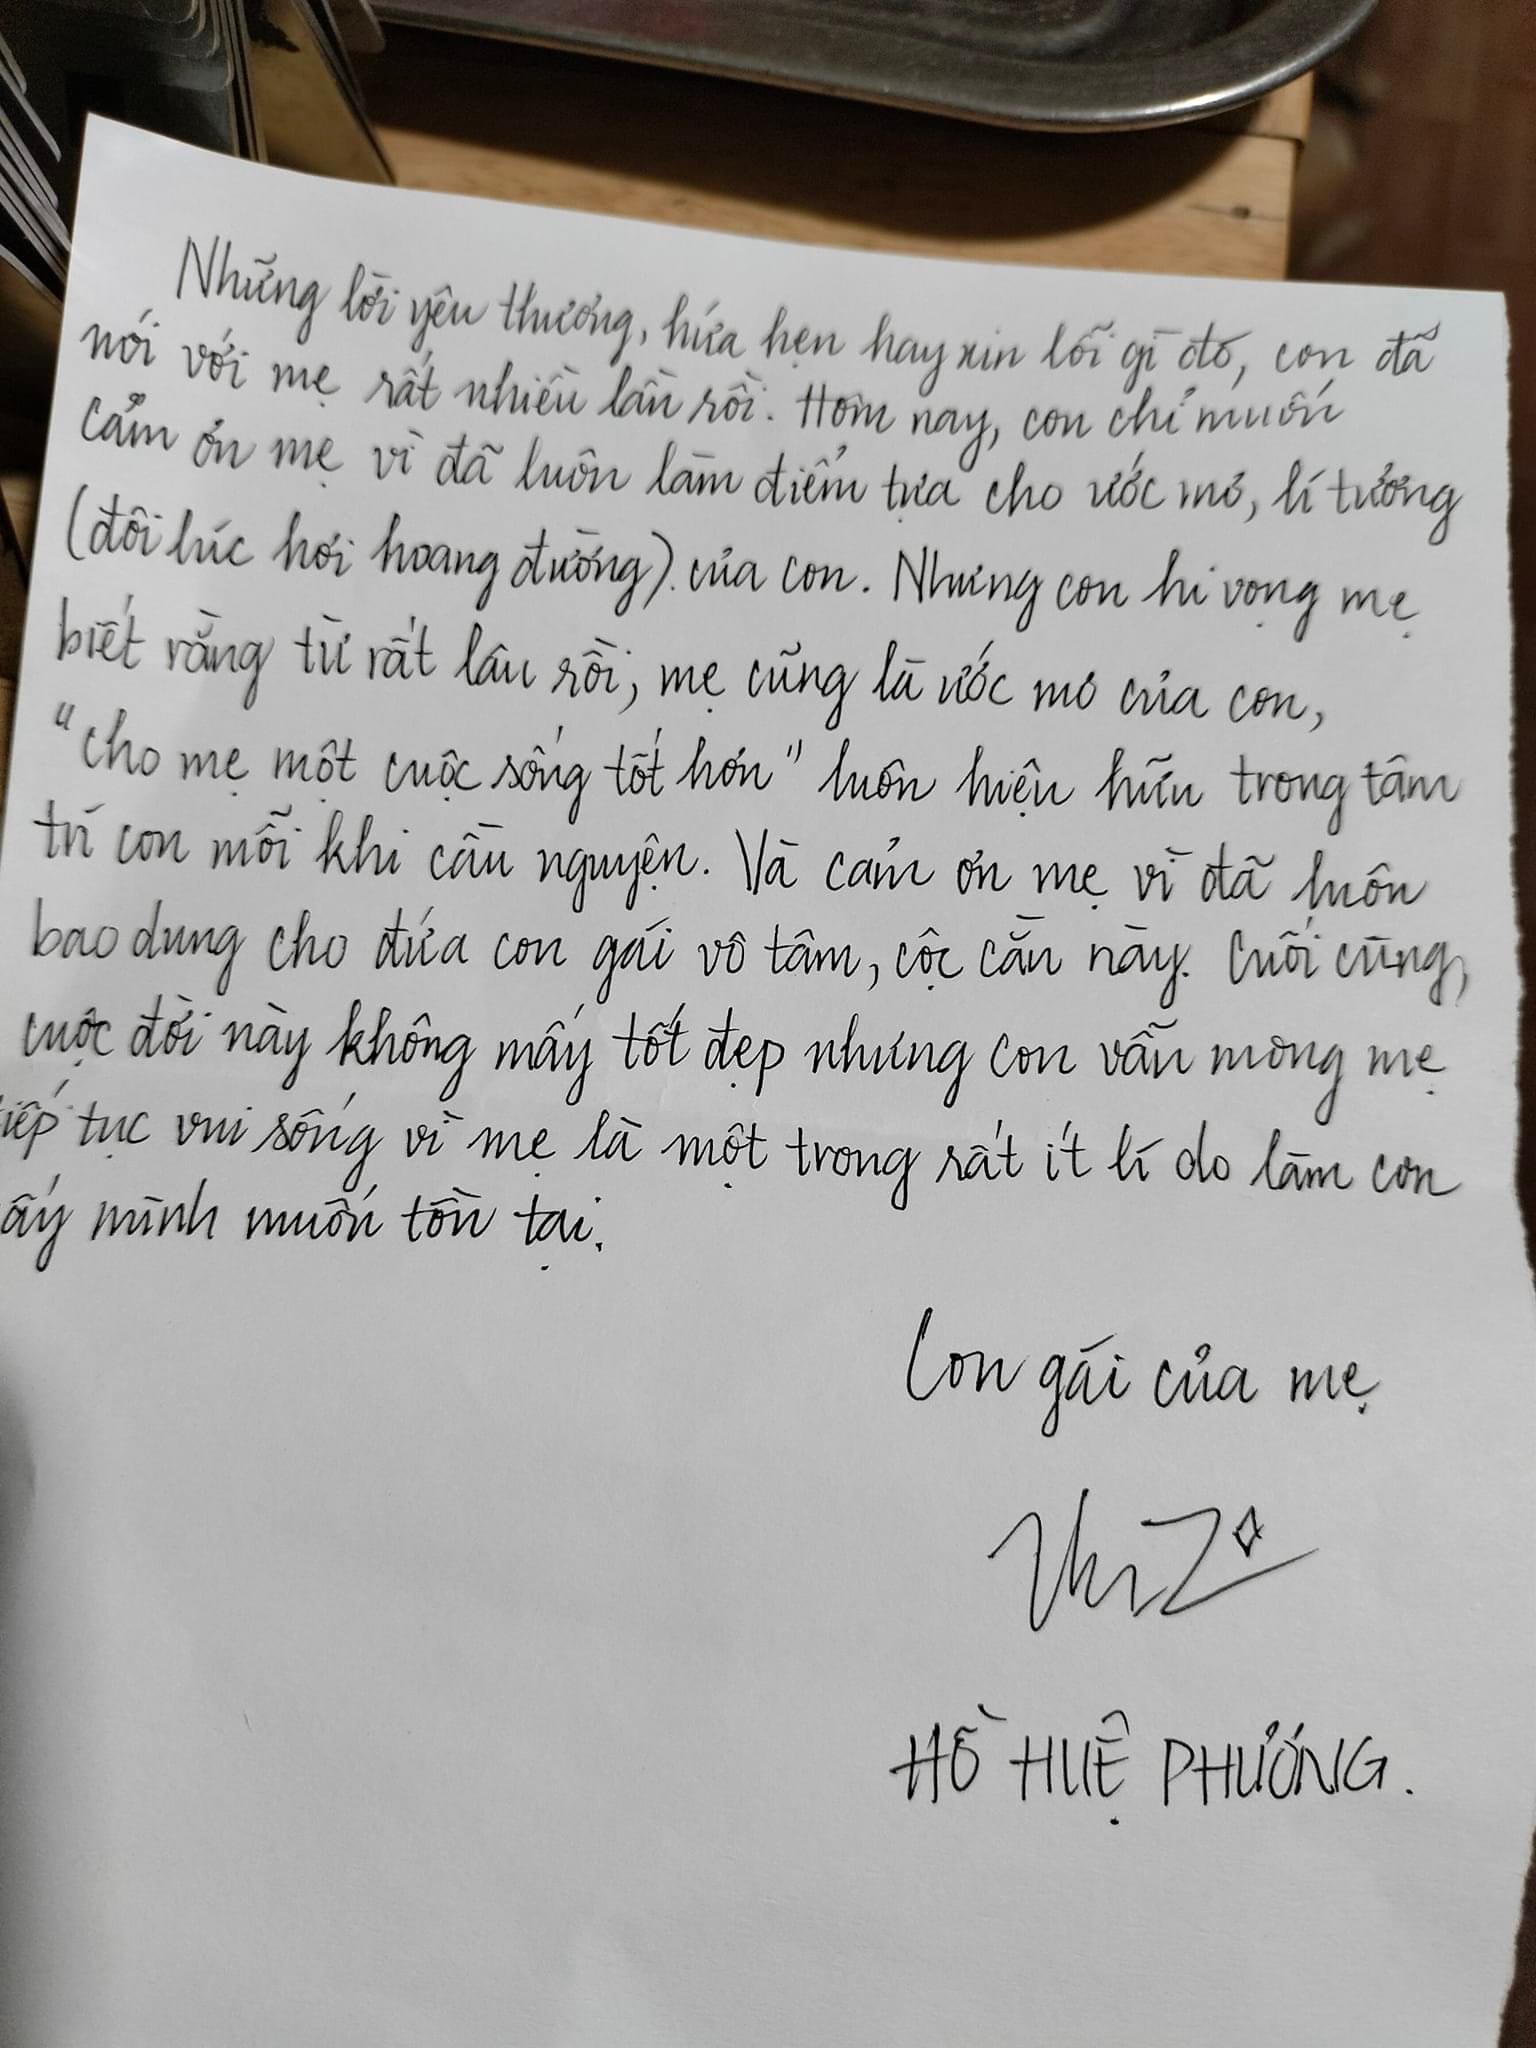 Những lời yêu thương, hứa hẹn hay xin lỗi gì đó, con đã
nói với mẹ rất nhiều lần rồi. Hôm nay, con chỉ muốn
cảm ơn mẹ vì đã luôn làm điểm tựa cho ước mơ, lí tưởng
(đôi lúc hơi hoang đường). của con. Nhưng con hi vọng mẹ
biết rằng từ rất lâu rồi, mẹ cũng là ước mơ của con,
"cho mẹ một cuộc sống tốt hơn" luôn hiện hữu trong tâm
trí con mỗi khi cầu nguyện. Và cảm ơn mẹ vì đã luôn
bao dung cho đứa con gái vô tâm, cộc cằn này. Cuối cùng,
cuộc đời này không mấy tốt đẹp nhưng con vẫn mong mẹ
iếp tục vui sống vì mẹ là một trong rất ít lí do làm con
ấy mình muốn tồn tại.
Con gái của mẹ
HỒ HUỆ PHƯƠNG.